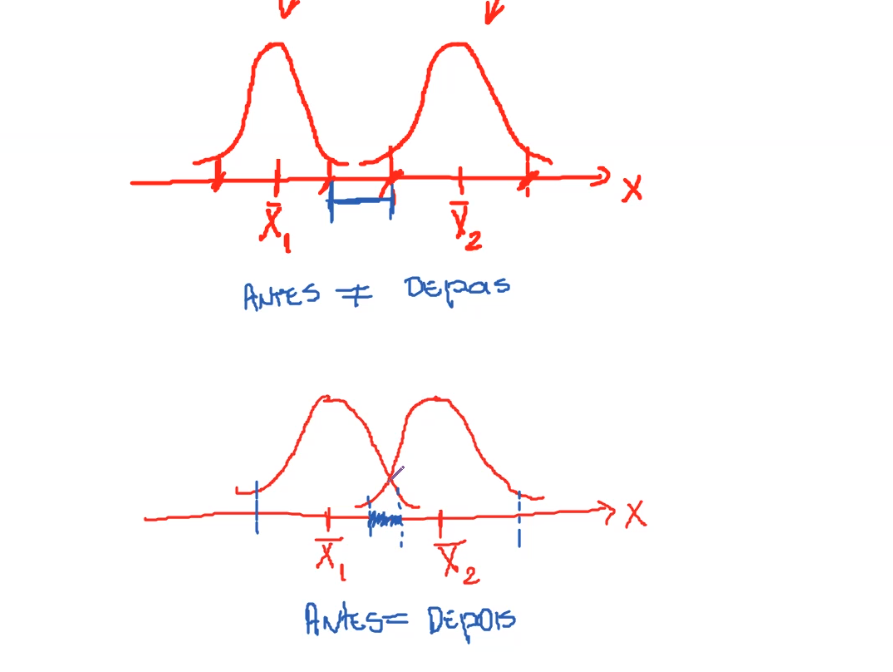 X
X̄₁ X̄₂
ANTES ≠ DEPOIS
X
X̄₁ X̄₂
ANTES = DEPOIS